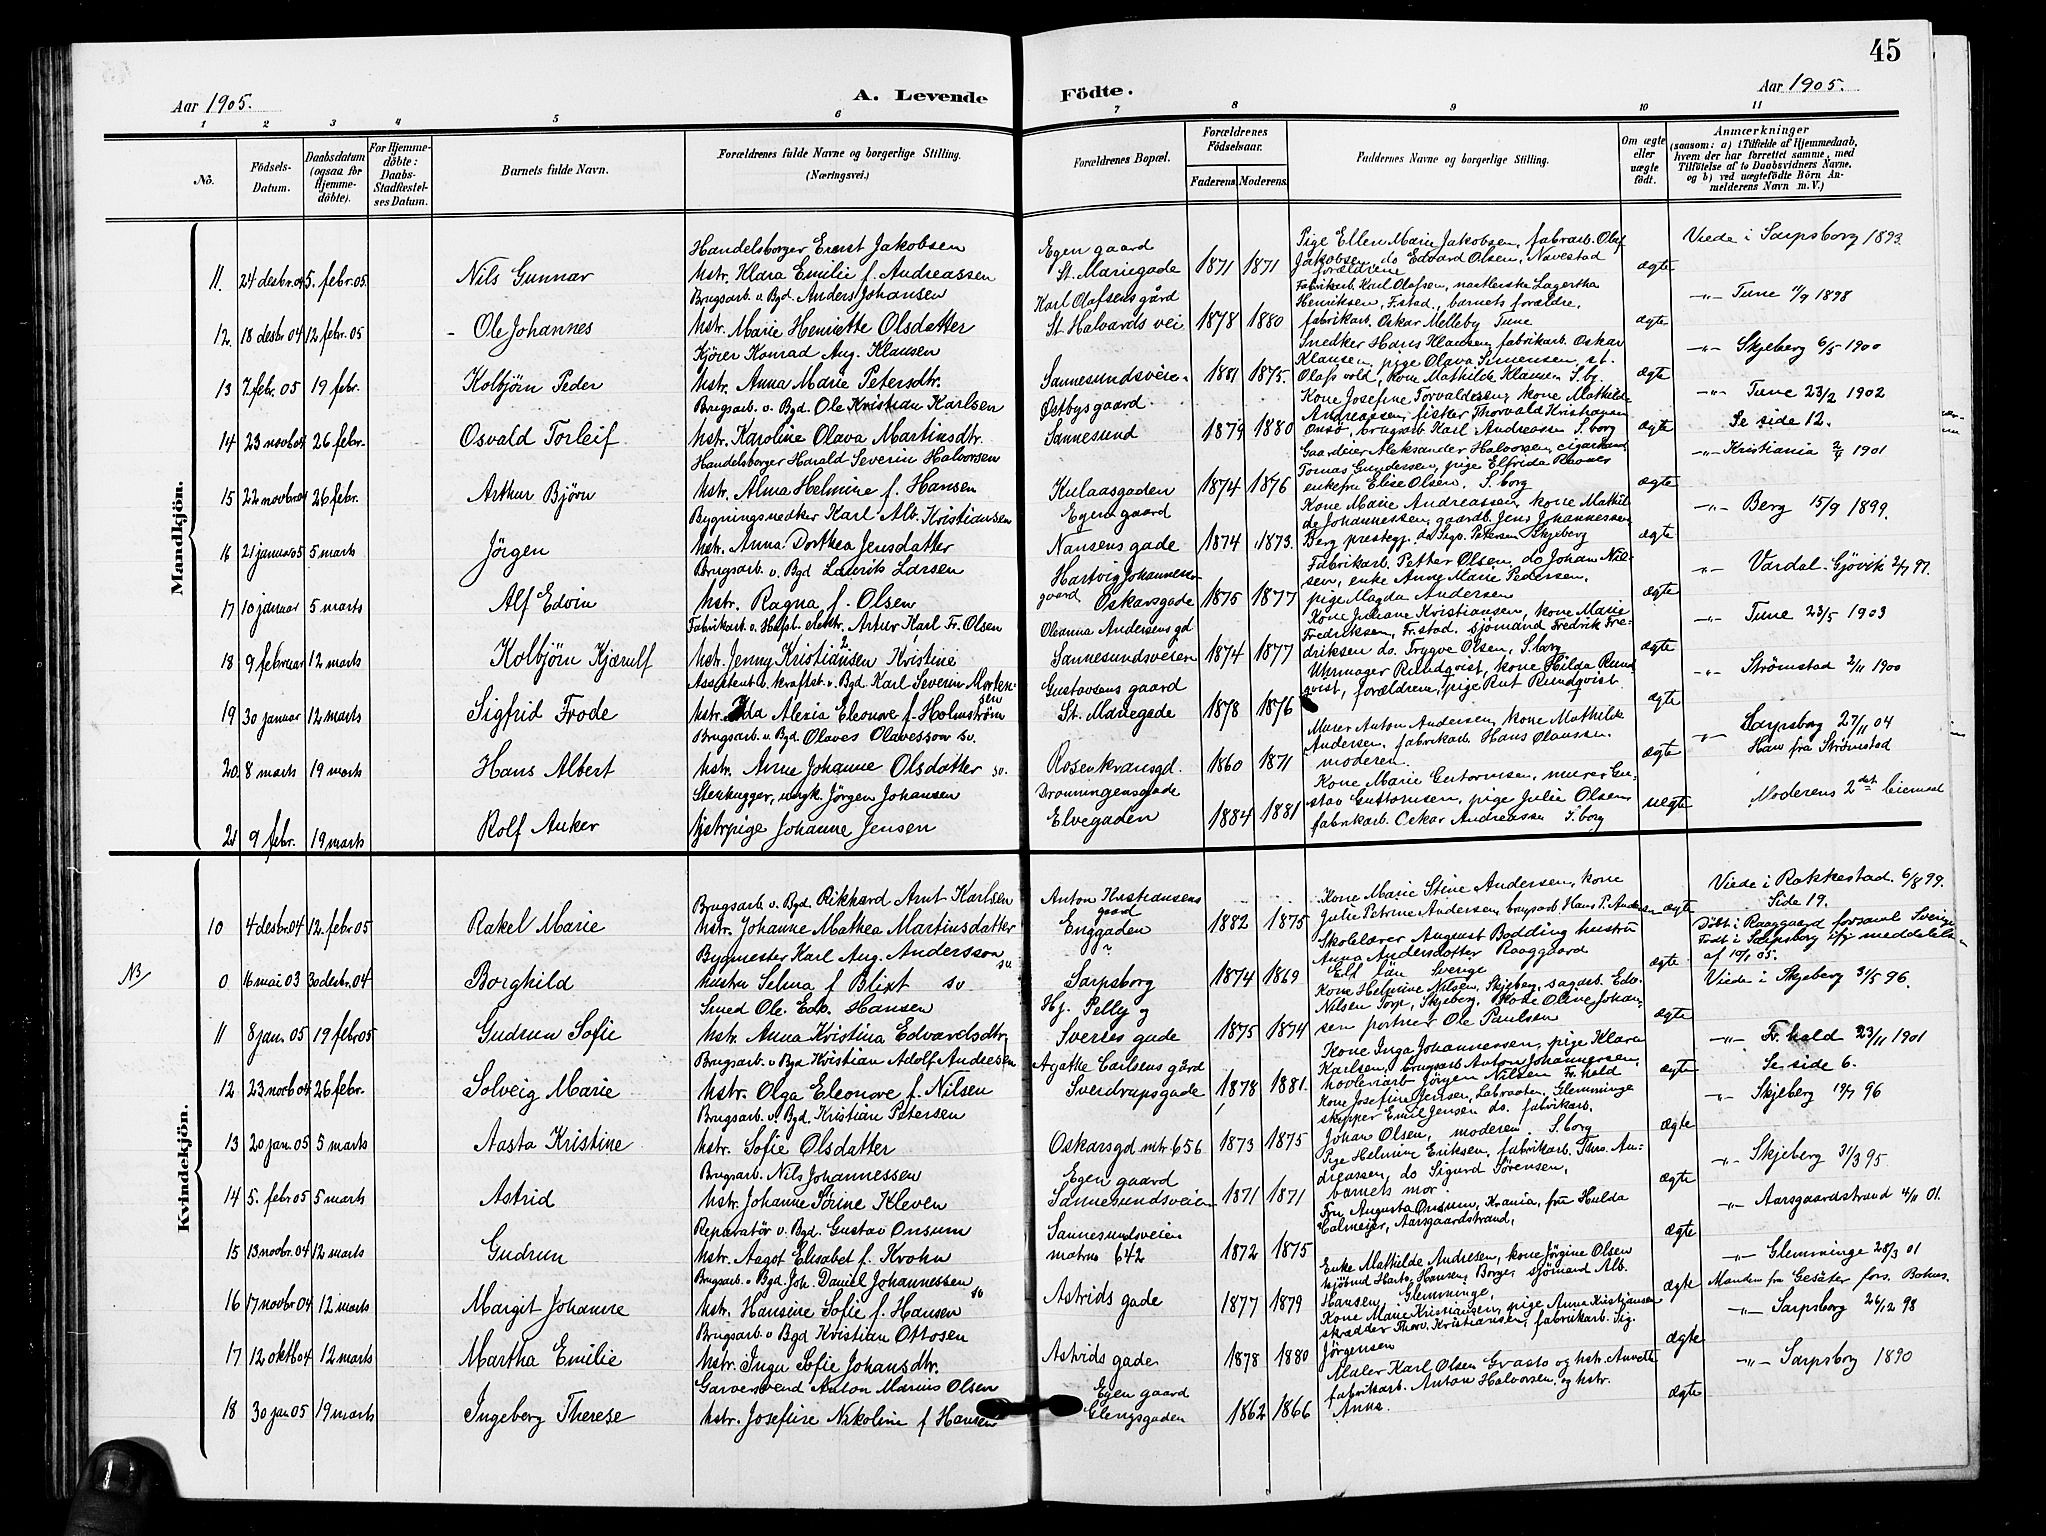 45
Aar 1905.
A. Levende
Födte.
Aar 1905.
1 2 3 4 5 6 7 8 9 10 11
No.
Födsels-Datum.
Daabsdatum (ogsaa for Hjemme-döbte).
For Hjemme-döbte: Daabs-Stadfæstel-ses Datum.
Barnets fulde Navn.
Forældrenes fulde Navne og borgerlige Stilling. (Næringsvei.)
Forældrenes Bopæl.
Forældrenes Födselsaar.
Faderens. Moderens.
Faddernes Navne og borgerlige Stilling.
Om ægte eller uægte födt.
Anmærkninger (saasom: a) i Tilfælde af Hjemmedaab, hvem der har forrettet samme, med Tilföielse af to Daabsvidners Navne. og b) ved uægtefödte Börn An-melderens Navn m. V.)
Mandkjön.
Handelsborger Ernst Jakobsen
Egen gaard
Pige Ellen Marie Jakobsen, fabrarb. Olaf
Viede i Sarpsborg 1893.
11. 24 desbr.04 5. febr.05. Nils Gunnar hstr. Klara Emilie f. Andreassen St. Mariegade 1871 1871 Jakobsen, do Edvard Olsen, Navestad ægte
forældrene
Brugsarb. v. Bgd. Anders Johansen
Karl Olafsens gård
Fabrikarb. Karl Olafsen, Lagertha
Henriksen, F.stad, barnets forældre,
-"- Tune 1898
12. 18 desbr 04 12 febr. 05 - Ole Johannes hstr. Marie Henriette Olsdatter St. Halvards vei 1878 1880 fabrikarb. Oskar Melleby Tune ægte
Kjører Konrad Aug. Klausen
Snedker Hans Klausen, fabrikarb. Oskar
-"- Skjeberg 6/5 1900
13 7. febr. 05 19 febr. Kolbjörn Peder hstr. Anna Marie Petersdtr. Sannesundsveien 1881 1875. Klausen, pige Olava Simensen, st.
Olafs vold, kone Mathilde Klausen S.bg. ægte
Brugsarb. v. Bgd. Ole Kristian Karlsen
Østbys gaard
Kone Josefine Torvaldesen, kone Mathilde
-"- Tune 23/2 1902
Andreassen, fisker Thorvald Kristiansen
14 23 novb 04 26 febr. Osvald Torleif hstr. Karoline Olava Martinsdtr. Sannesund 1879 1880 Onsö, brugsarb. Karl Andreassen S.borg ægte Se side 12.
Handelsborger Harald Severin Halvorsen
Gaardeier Aleksander Halvorsen,
-"- Kristiania 1901
Tomas Gundersen, pige Elfrida
15 22 novbr.04 26 febr. Arthur Björn hstr. Alma Helmine f. Hansen Kulaasgaden 1874 1876 enkefru Elise Olsen, S.borg ægte
Bygningssnedker Karl Alb. Kristiansen
Egen gaard
Kone Marie Andreassen, kone Mathil
-"- Berg 15/9 1899.
de Johannessen, gaardb. Jens Johannessen
16 21 januar 05 5 marts Jörgen hstr. Anna Dorthea Jensdatter Nansens gade 1874 1873. Berg prestegj. do Sigv. Petersen Skjeberg ægte
Brugsarb. v. Bgd Laurits Larsen
Hartvig Johannessens gaard
Fabrikarb. Petter Olsen, do Johan Niel-
sen, enke Anne Marie Pedersen,
-"- Vardal - Gjövik 2/7 97.
17 10 januar 5 marts Alf Edvin hstr. Ragna f. Olsen Oskarsgade 1875 1877 pige Magda Andersen ægte
Fabrikarb. v. Hafsl. elektr. Artur Karl Fr. Olsen
Oleanna Andersens gd
Kone Juliane Kristiansen, kone Marie
-"- Tune 23/5 1903
Fredriksen, Fr.stad. sjömand Fredrik Fre-
18 9 februar 12 marts Kolbjörn Kjærulf hstr. Jenny Kristiansen Kristine Sannesundsveien 1874 1877 driksen do. Trygve Olsen, S.borg ægte
Assistent v. kraftst. v. Bgd Karl Severin Morten-sen
Gustavsens gaard
Uhrmager Rundqvist, kone Hilda Rund
-"- Strömstad 2/11 1900
qvist, forældrene, pige Rut Rundqvist
19 30 januar 12 marts Sigfrid Frode hstr. Ida Alexia Eleonore f. Holmström St. Mariegade 1878 1876 ægte
Brugsarb. v. Bgd. Olaves Olavesson sv.
Murer Anton Andersen, kone Mathilde
-"- Sarpsborg 27/11 04
Andersen, fabrikarb. Hans Olaussen.
Han fra Strömstad
20. 8 marts 19 marts Hans Albert hstr. Anne Johanne Olsdatter sv. Rosenkransgd. 1860 1871 moderen. ægte
Stenhugger, ungk. Jörgen Johansen
Dronningensgade
Kone Marie Guttormsen, murer Gu-
Moderens 2det leiermaal
21 9 febr. 19 marts Rolf Anker Tjstrpige Johanne Jensen Elvegaden 1884 1881 stav Guttormsen, pige Julie Olsen, uægte
fabrikarb. Oskar Andreassen S.borg
Kvindekjön.
Brugsarb. v. Bgd. Rikhard Arnt Karlsen
Anton Kristiansens gaard
Kone Marie Stine Andersen, kone
Viede i Rakkestad 6/8 99.
Side 19.
10 4 desbr.04 12. febr.05 Rakel Marie hstr. Johanne Mathea Martinsdatter Enggaden 1882 1875 Julie Petrine Andersen, brugsarb Hans P. Andersen ægte
Bygmester Karl Aug. Andersson sv
"
Skolelærer August Bodding hustru
Döbt i Raaggaard forsaml Sverige
Födt i Sarpsborg ifj meddelelse
af 10/1 05.
NB/ 0 16 mai 03 30 desbr. 04 Borghild hustru Selma f Blixt sv Sarpsborg 1874 1869 Anna Andersdotter Raaggaard
Elf län Sverige ægte
Smed Ole Edv. Hansen
Hj. Pelly og
Kone Helmine Nilsen, Skjeberg, sagarb. Edv.
Viede i Skjeberg 31/5 96.
Nilsen Torp, Skjeberg, kone Oline Johan-
11 8 jan. 05 19 febr 05 Gudrun Sofie hstr. Anna Kristina Edvardsdtr. Sverres gade 1875 1874 sen portner Ole Paulsen ægte
Brugsarb. v Bgd Kristian Adolf Andresen
Agathe Carlsens gård
Kone Inga Johannessen, pige Klara
-"- Fr. hald 23/11 1901
Karlsen, brugsarb Anton Johannersen,
Se side 6.
12 23 novb 04 26 febr. Solveig Marie hstr. Olga Eleonore f. Nilsen Sverdrupsgade 1878 1881. hövleriarb Jörgen Nilsen Fr. hald ægte
Brugsarb. v. Bgd. Kristian Petersen
Kone Josefine Jensen, Labraaten, Glemminge
-"- Skjeberg 19/7 96
skipper Emil Jensen do. fabrikarb.
13 20 jan. 05 5 marts Aasta Kristine hstr. Sofie Olsdatter Oskarsgd mtr 656 1873 1875 Johan Olsen, moderen. S.borg ægte
Brugsarb. Nils Johannessen
Egen gaard
Pige Helmine Eriksen, fabrikarb. Thrs. An-
-"- Skjeberg 31/3 95
dreassen, do Sigurd Sörensen,
14 5. febr 05 5 marts Astrid hstr. Johanne Sörine Kleven Sannesundsveien 1871 1871 barnets mor. ægte
Reparatör v. Bgd. Gustav Onsum
Sannesundsveien
Fru Augusta Onsum, Krania, fru Hulda
-"- Aarsgaardstrand 4/11 01.
15 13 novbr. 04 12 marts Gudrun hstr. Aagot Elisabet f. Krohn matrno 642 1872 1875 Calmeier, Aarsgaardstrand, ægte
Brugsarb. v Bgd. Joh. Daniel Johannessen sv
Enke Mathilde Andresen, kone Jörgine Olsen
-"- Glemminge 28/3 01
Hansen, Borge, sjömand Alb.
Manden fra Gesäter fors. Bohus.
16 17 novbr.04 12 marts Margit Johanne hstr. Hansine Sofie f. Hansen Astrids gade 1877 1879 Hansen, Glemminge, ægte
Brugsarb. v Bgd Kristian Ottosen
Kone Marie Kristiansen, pige Anne Kristjansen
-"- Sarpsborg 26/12 98
skrædder Thorv. Kristiansen, fabrikarb. Sig.
17 12 oktb 04 12 marts Martha Emilie hstr. Inga Sofie Johansdtr. Astrids gade 1878 1880 Jörgensen ægte
Garversvend Anton Marius Olsen
Egen gaard
Maler Karl Olsen Grasto og hstr. Anette
-"- Sarpsborg 1890
fabrikarb. Anton Halvorsen, og hstr.
18 30 jan 05 19 marts Ingeborg Therese hstr. Josefine Nikoline f Hansen Glengsgaden 1862 1866 Anna. ægte